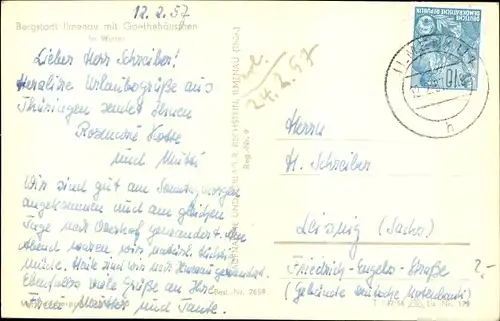 12.2.57
Bergstadt Ilmenau mit Goethehäuschen
im Winter
Lieber Herr Schreiber!
Herzliche Urlaubsgrüße aus
Thüringen sendet Ihnen
und Mutti
Wir sind gut am Sonntagmorgen
angekommen und am gleichen
Tage nach Oberhof gewandert. Am
Abend waren wir natürl.
müde. Heute sind wir nach gewandert.
Ebenfalls viele Grüße an Ihre
Frau Mutter und Tante.
24.2.57
Reg.-Nr. 9
Best.-Nr. 7659
DEUTSCHE
DEMOKRATISCHE REPUBLIK
10
ILMENAU
12.2.57
h
Herrn
H. Schreiber
Leipzig (Sachs.)
Friedrich-Engels-Straße ?-
(Gebäude Deutsche Notenbank)